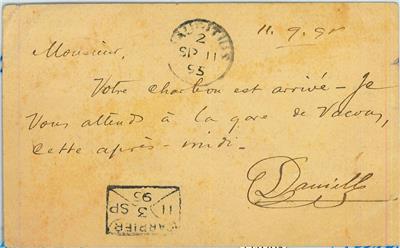 MAURITIUS
2
SP 11
95
11.9.95
Monsieur,
Votre charbon est arrivé – Je
Vous attends à la gare de Vacoas,
cette après-midi –
CARRIER
3
11 SP
95